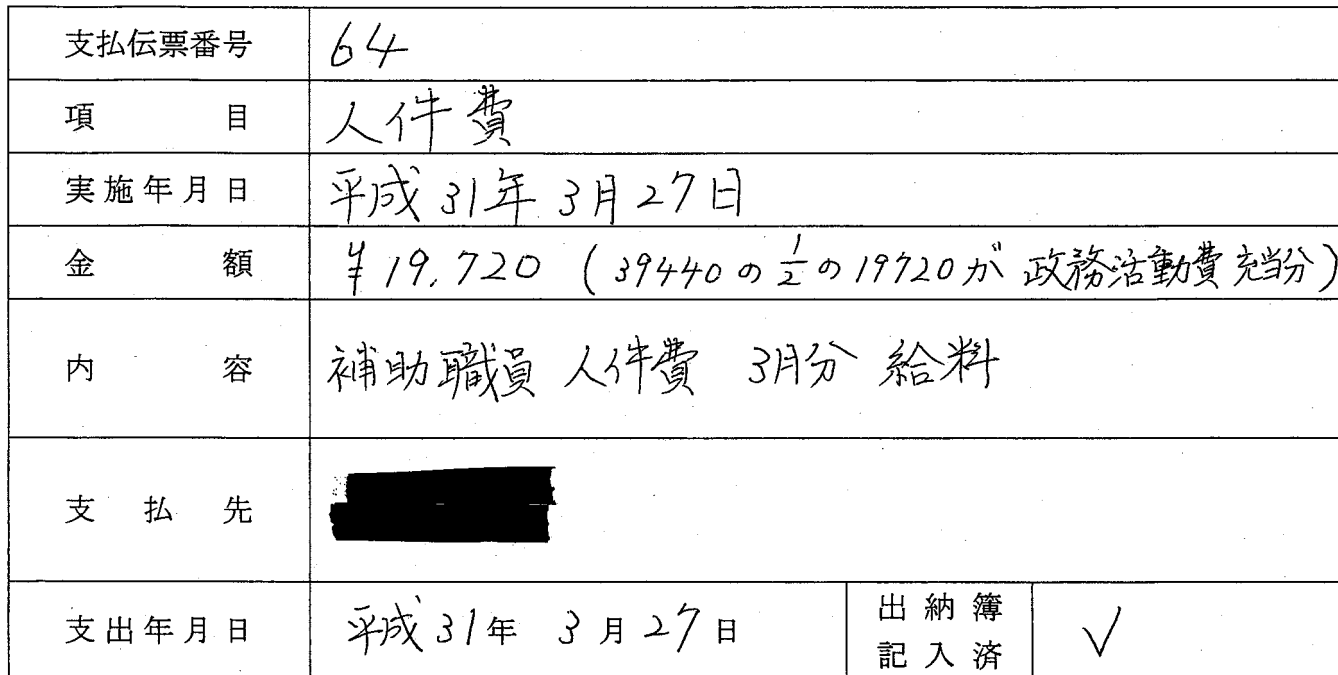 支払伝票番号 64
項目 人件費
実施年月日 平成31年3月27日
金額 ¥19,720 (39440の1/2の19720が政務活動費充当分)
内容 補助職員 人件費 3月分 給料
支払先
支出年月日 平成31年 3月27日 出納簿記入済 ✓